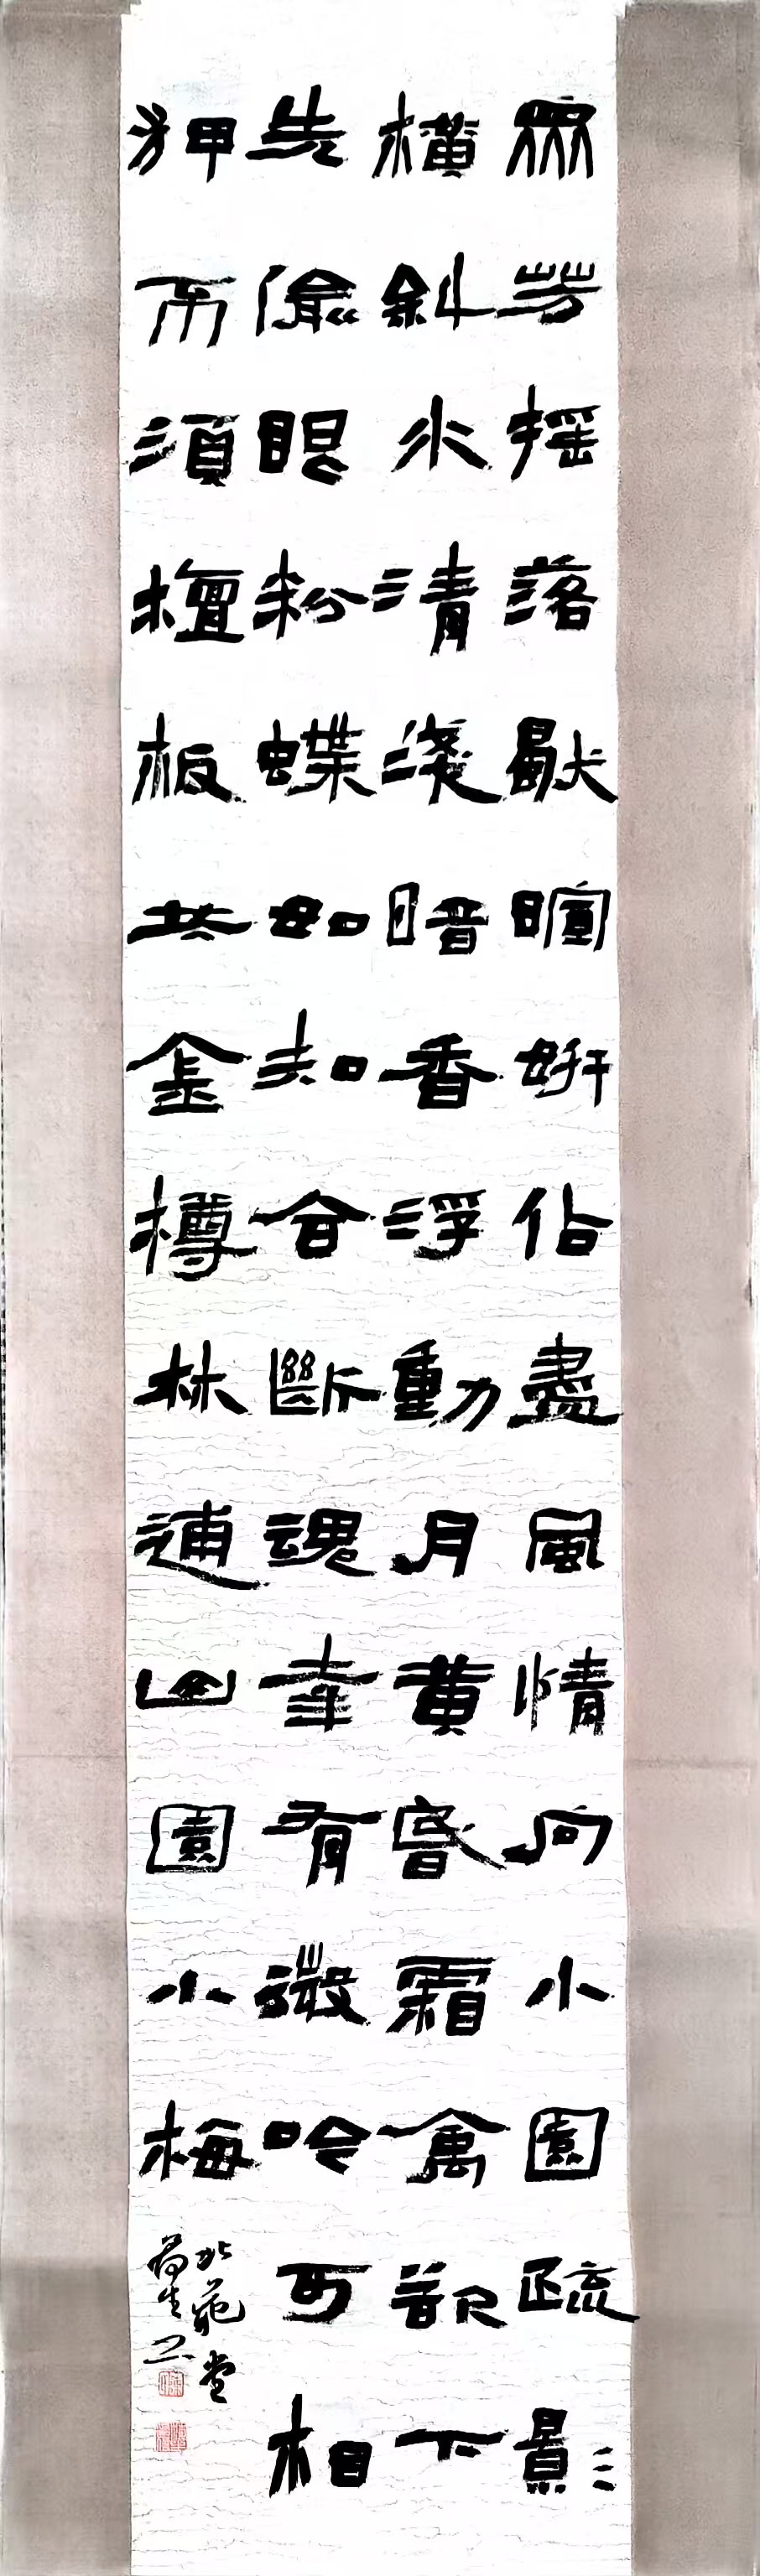 眾芳摇落獨暄妍佔盡風情向小園疏影
橫斜水清淺暗香浮動月黃昏霜禽欲下
先偷眼粉蝶如知合斷魂幸有微吟可相
狎不須檀板共金樽林逋山園小梅
北苑堂
生书